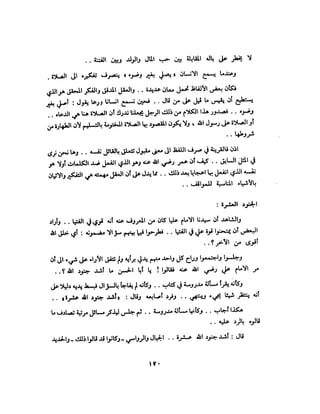 لا يخطر على باله المقابلة بين حب المال والولد وبين الفتنة ..
وعندما يسمع الانسان « يصلي بغير وضوء » ينصرف تفكيره الى الصلاة .
فكأن بعض الألفاظ تحمل معان عديدة .. والعقل المدقق والفكر المحقق هو الذي
يستطيع أن يقيس ما قيل على من قال .. فحين نسمع انسانا ورعا يقول : أصلي بغير
وضوء .. فصدور هذا الكلام من ذلك الرجل يجعلنا ندرك أن الصلاة هنا هي الدعاء ..
أو الصلاة على رسول الله ، ولا يكون المقصود بها الصلاة المختومة بالتسليم لأن الطهارة من
شروطها ..
اذن فالقرينة في صرف اللفظ الى معنى مقبول تتعلق بالقائل نفسه .. وها نحن نرى
في المثل السابق .. كيف أن عمر رضي الله عنه وهو الذي انفعل ضد الكلمات أولا هو
نفسه الذي انفعل بها اعجابا بعد ذلك .. مما يدل على أن العقل مهمته هي التفكير والاتيان
بالأشياء المناسبة للمواقف ..
الجنود العشرة :
والشاهد أن سيدنا الامام عليا كان من المعروف عنه أنه قوي في الفتيا .. وأراد
البعض أن يمتحنوا قوة علي في الفتيا .. فطرحوا فيما بينهم سؤالا مضمونه : أي خلق الله
أقوى من الآخر ؟ ..
وجلسوا واجتمعوا وراح كل واحد منهم يدلي برأيه ولم تتفق الآراء على شيء الى أن
مر الامام علي رضي الله عنه فقالوا ! يا أبا الحسن ما أشد جنود الله ؟ ..
وكأنه يقرأ مسألة مدروسة في كتاب .. وكأنه لم يفاجأ بالسؤال فبسط يديه دليلا على
أنه ينتظر شيئا وينتهي .. وفرد أصابعه وقال : « أشد جنود الله عشرة » ..
هكذا أجاب .. وكأنها مسألة مدروسة .. ثم جلس ليذكر مسائل مرتبة تصادف ما
قالوه بالرد عليه ..
قال : أشد جنود الله عشرة .. الجبال والرواسي .. وكانوا قد قالوا ذلك .. والحديد
١٢٠